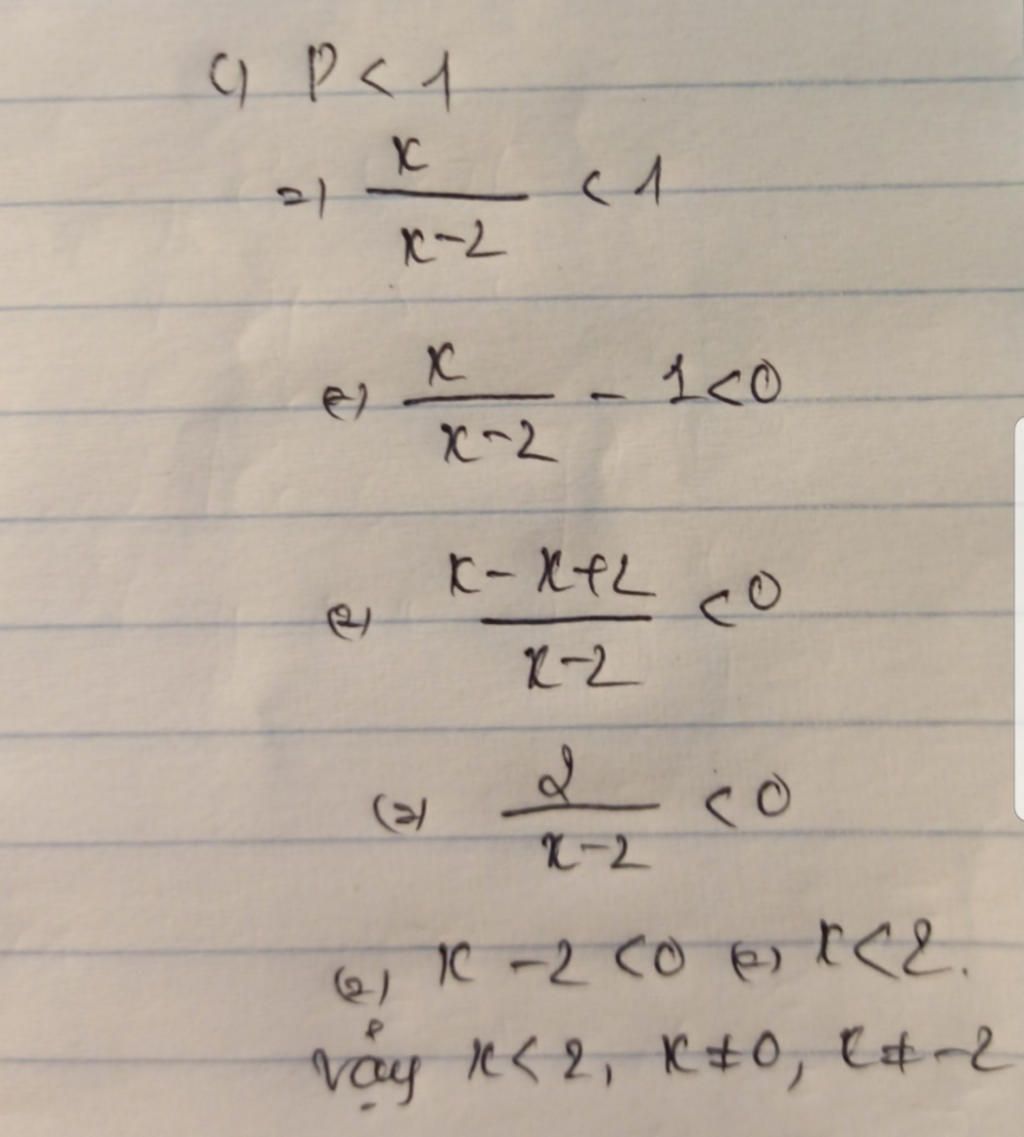 c) P < 1
=) x/(x-2) < 1
(=) x/(x-2) - 1 < 0
(=) (x - x + 2)/(x-2) < 0
(=) 2/(x-2) < 0
(=) x - 2 < 0 (=) x < 2.
vậy x < 2, x ≠ 0, x ≠ -2